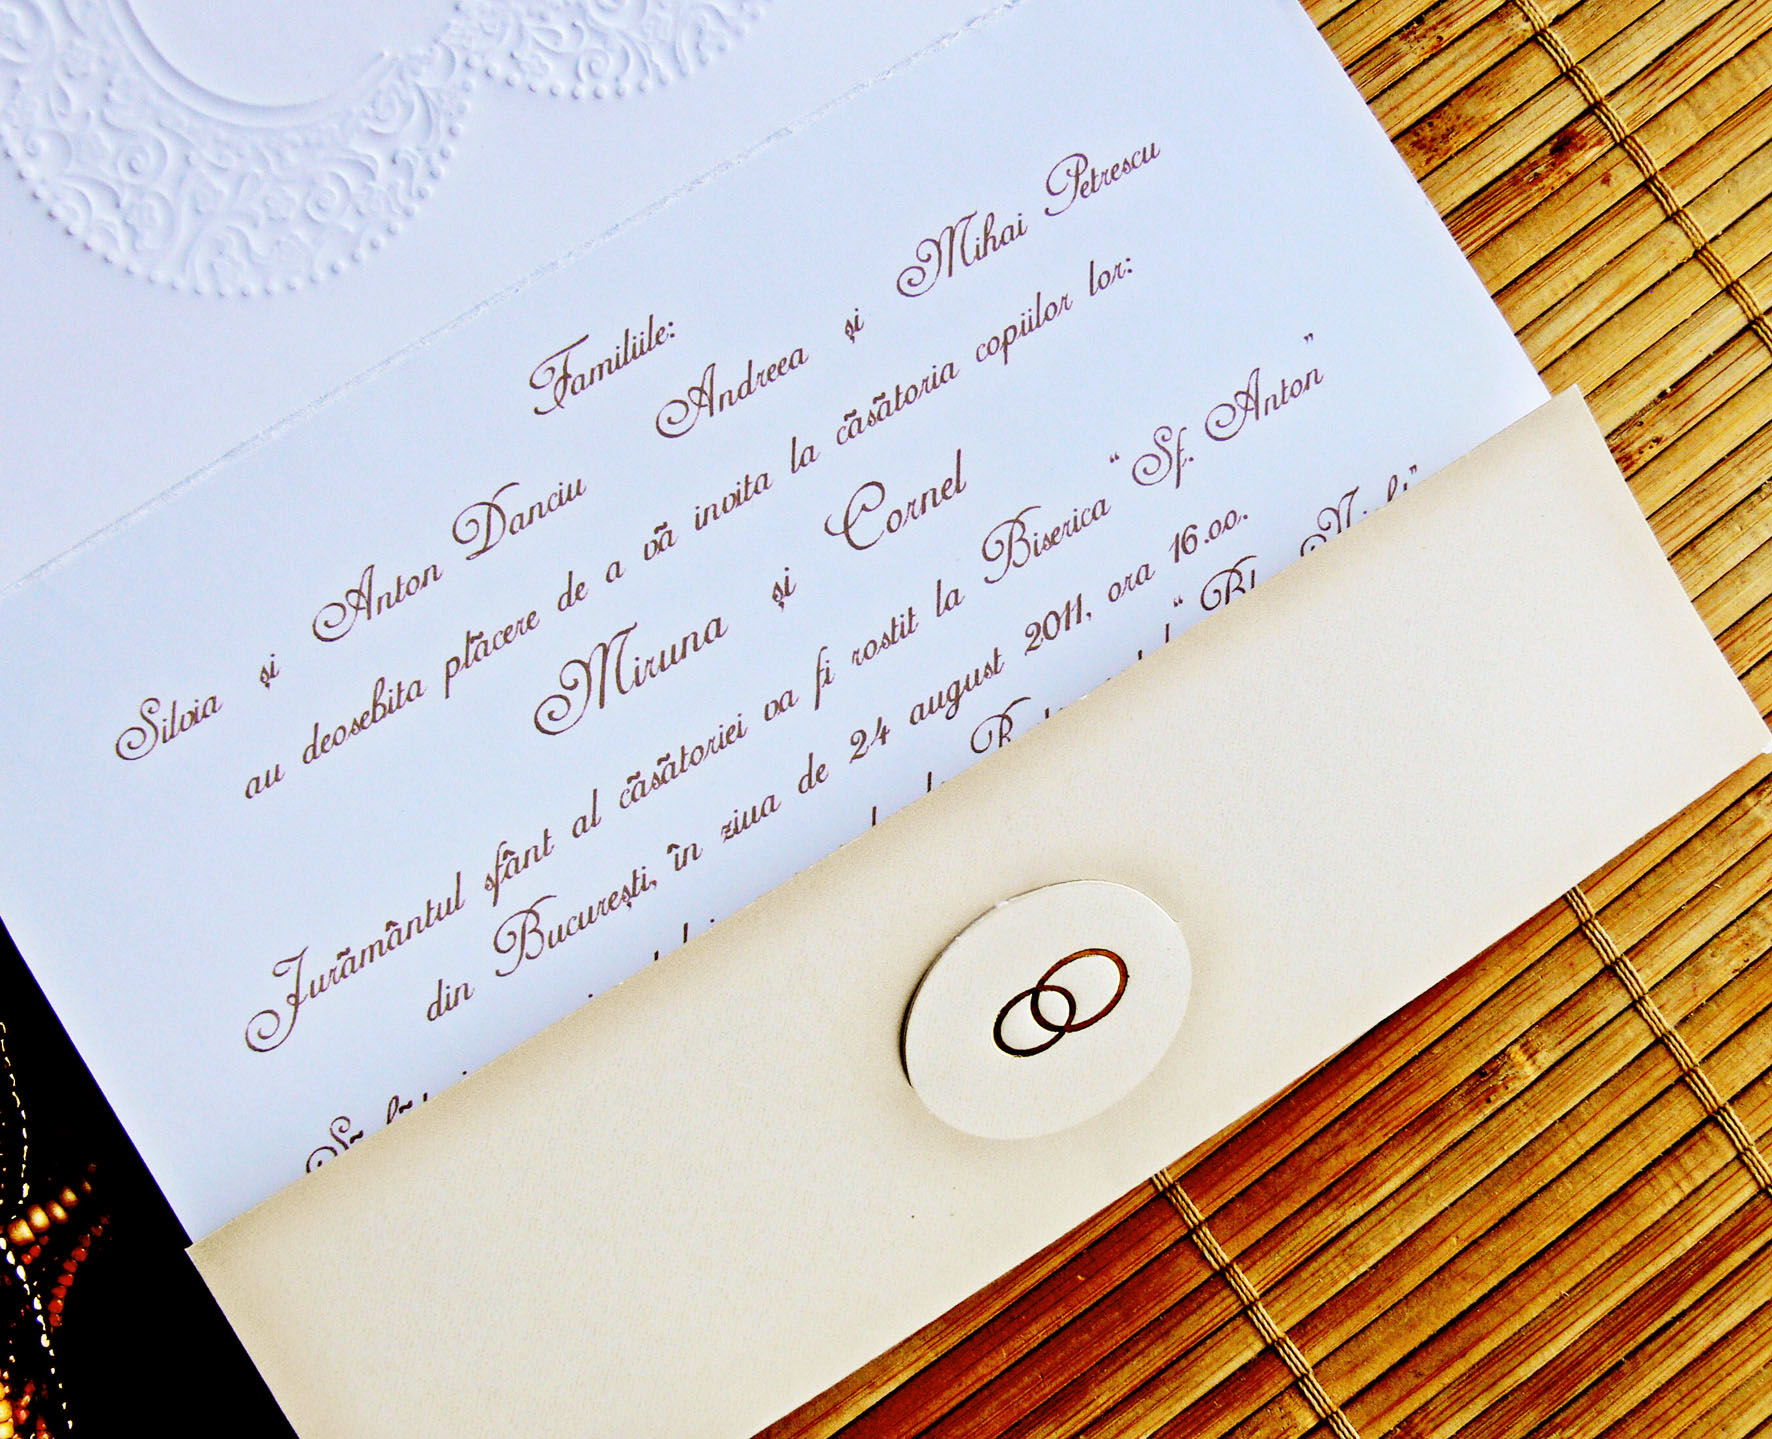 Familiile:
Silvia și Anton Danciu Andreea și Mihai Petrescu
au deosebita plăcere de a vă invita la căsătoria copiilor lor:
Miruna și Cornel
Jurământul sfânt al căsătoriei va fi rostit la Biserica “Sf. Anton”
din București, în ziua de 24 august 2011, ora 16.00.